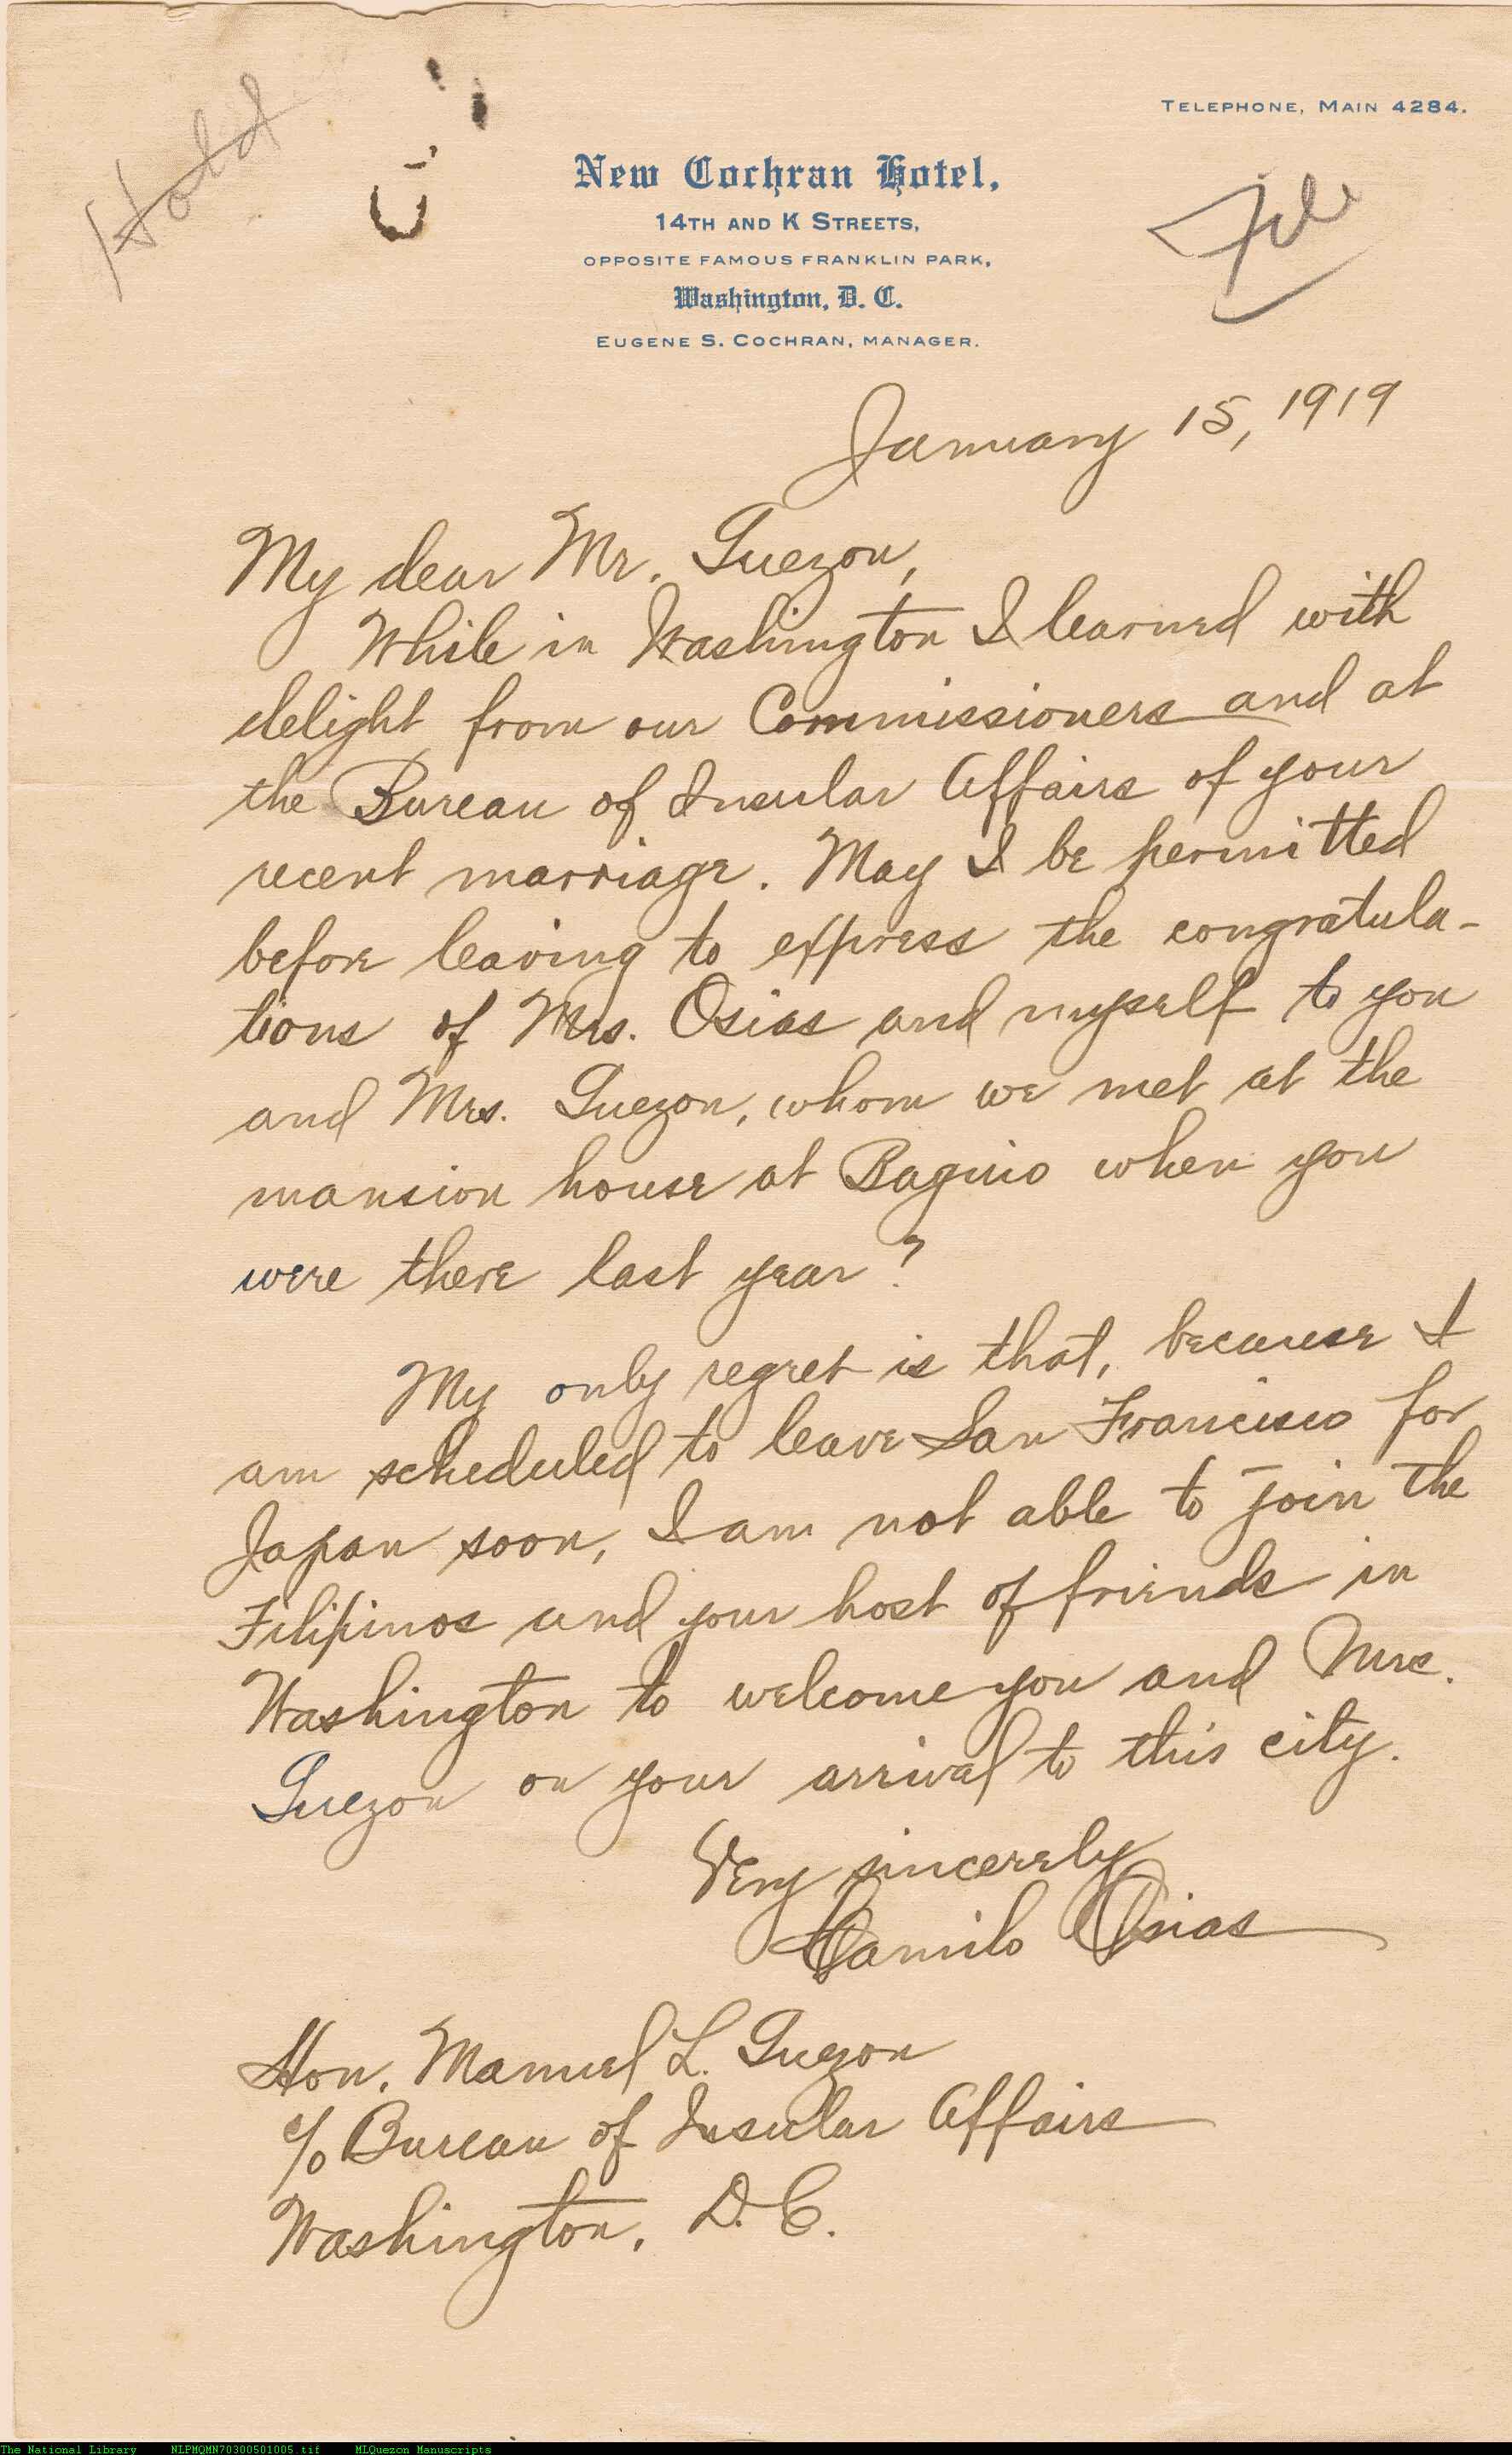 Hold
TELEPHONE, MAIN 4284.
New Cochran Hotel,
14TH AND K STREETS,
OPPOSITE FAMOUS FRANKLIN PARK,
Washington, D. C.
EUGENE S. COCHRAN, MANAGER.
File
January 15, 1919
My dear Mr. Quezon,
While in Washington I learned with
delight from our Commissioners and at
the Bureau of Insular Affairs of your
recent marriage. May I be permitted
before leaving to express the congratula-
tions of Mrs. Osias and myself to you
and Mrs. Quezon, whom we met at the
mansion house at Baguio when you
were there last year?
My only regret is that, because I
am scheduled to leave San Francisco for
Japan soon, I am not able to join the
Filipinos and your host of friends in
Washington to welcome you and Mrs.
Quezon on your arrival to this city.
Very sincerely
Camilo Osias
Hon. Manuel L. Quezon
c/o Bureau of Insular Affairs
Washington, D.C.
The National Library NLPMQMN70300501005.tif MLQuezon Manuscripts